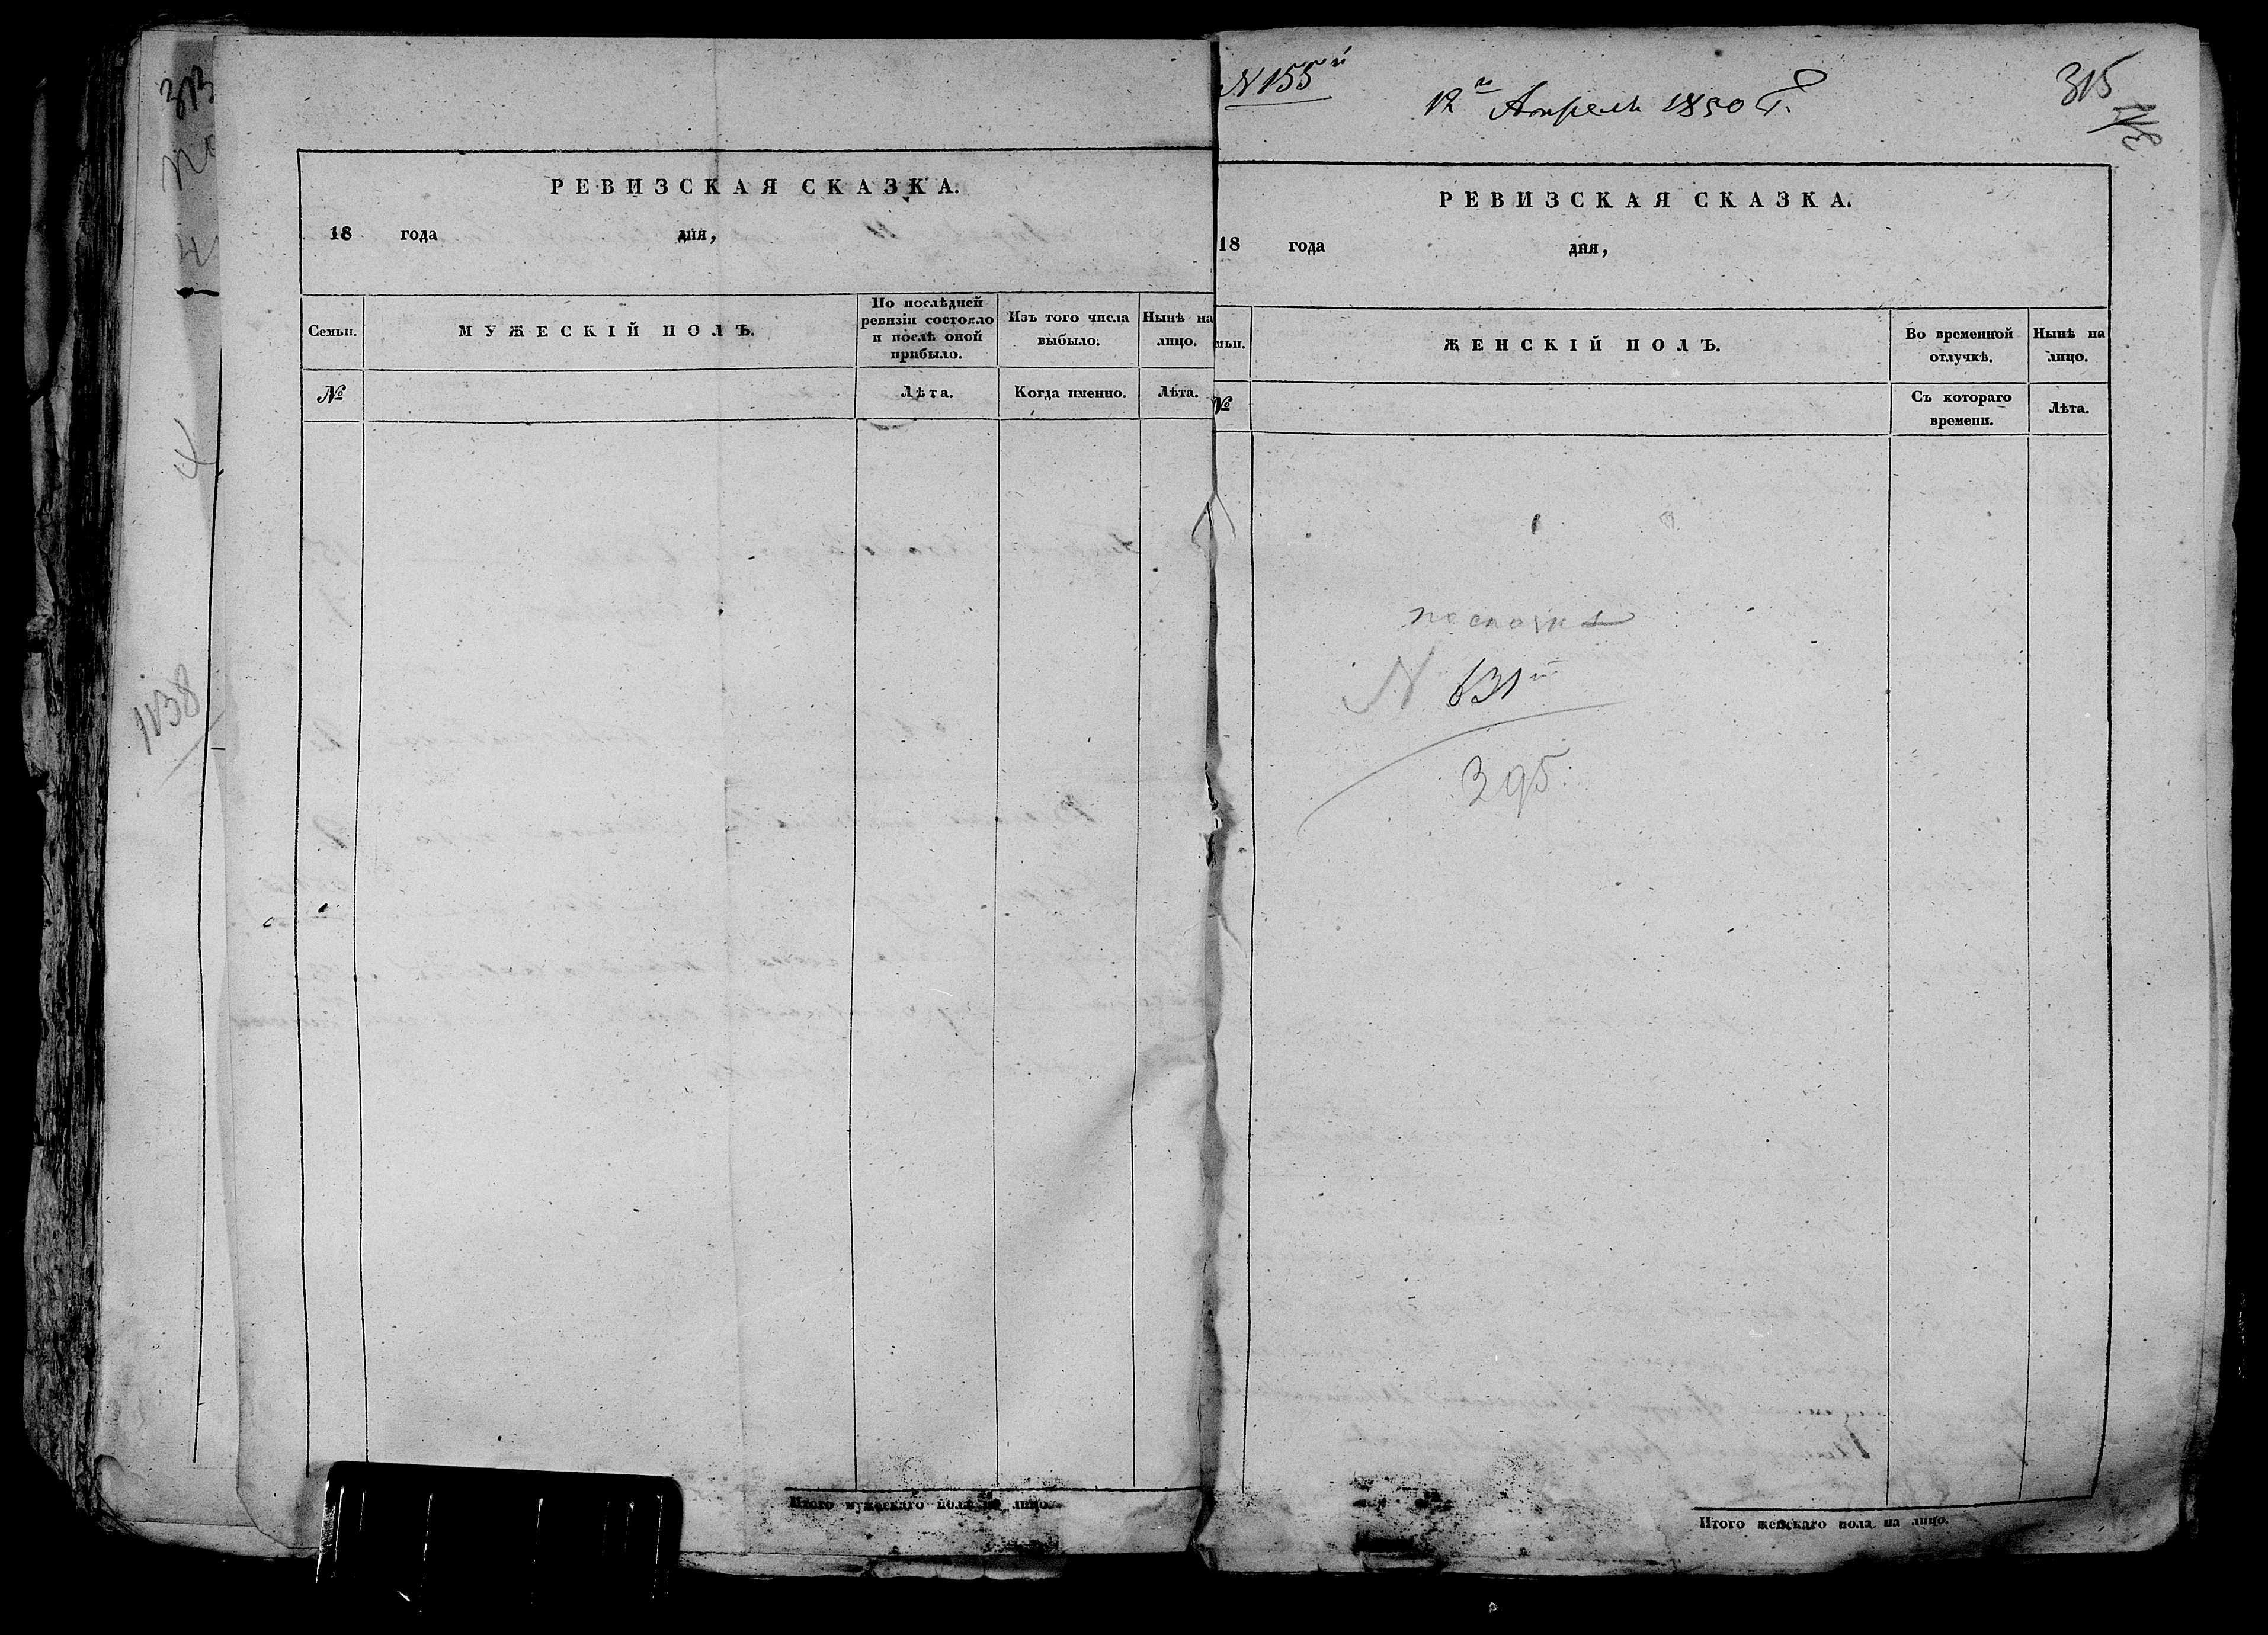 313
1138
РЕВИЗСКАЯ СКАЗКА.
18 года дня,
Семьи.
МУЖЕСКІЙ ПОЛЪ.
По послѣдней ревизіи состояло и послѣ оной прибыло.
Изъ того числа выбыло.
Нынѣ на лицо.
№
Лѣта.
Когда именно.
Лѣта.
Итого мужескаго пола на лицо.
N 155й
12го Апрель 1850 Г.
315
РЕВИЗСКАЯ СКАЗКА.
18 года дня,
мьи.
ЖЕНСКІЙ ПОЛЪ.
Во временной отлучкѣ.
Нынѣ на лицо.
№
Съ котораго времени.
Лѣта.
N 631
395
Итого женскаго пола на лицо.